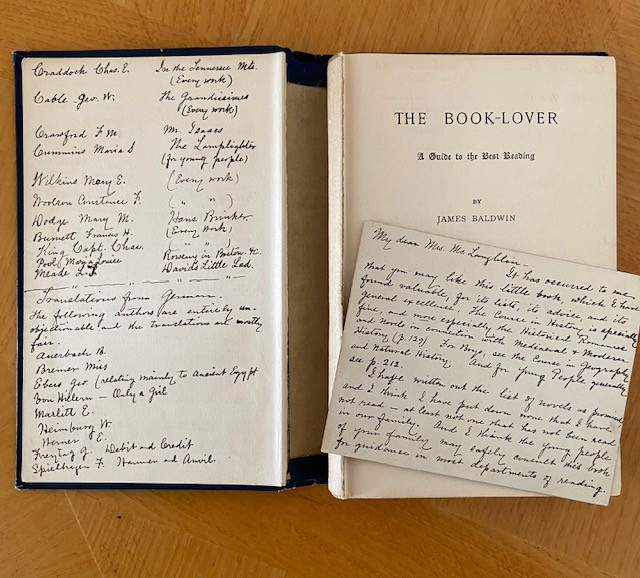 Craddock Chas. E. In the Tennessee Mts.
(Every work)
Cable Geo. W. The Grandissimes
(Every work)
Crawford F. M. Mr. Isaacs
Cummins Maria S The Lamplighter
(for young people)
Wilkins Mary E. (Every work)
Woolson Constance F. ( " " )
Dodge Mary M. Hans Brinker
Burnett Francis H. (Every Work)
King Capt. Chas. ( " " )
Pool Maria Louise Roweny in Boston. &c.
Meade L. T. Davids Little Lad.
Translations from German.
The following authors are entirely un-
objectionable and the translations are mostly
fair.
Auerbach B.
Bremer Miss
Ebers Geo (relating mainly to Ancient Egypt
Von Hillern - Only a Girl
Marlitt E.
Heimburg W.
Werner E.
Freytag G. Debit and Credit
Spielhagen F. Hammer and Anvil
THE BOOK-LOVER
A Guide to the Best Reading
BY
JAMES BALDWIN
My dear Mrs. McLaughlin -
It has occurred to me
that you may like this little book, which I have
found valuable, for its lists, its advice, and its
general excellence. The Course in History is especially
fine, and more especially the Historical Romances
and Novels in connection with Mediaeval & Modern
History (p. 129) For Boys, see the Course in Geography
and Natural History. And for Young People generally
see p. 212.
I hope written out the list of novels as promised
and I think I have put down none that I have
not read - at least not one that has not been read
in our family. And I think the young people
of your family may safely consult this book
for guidance in most departments of reading.